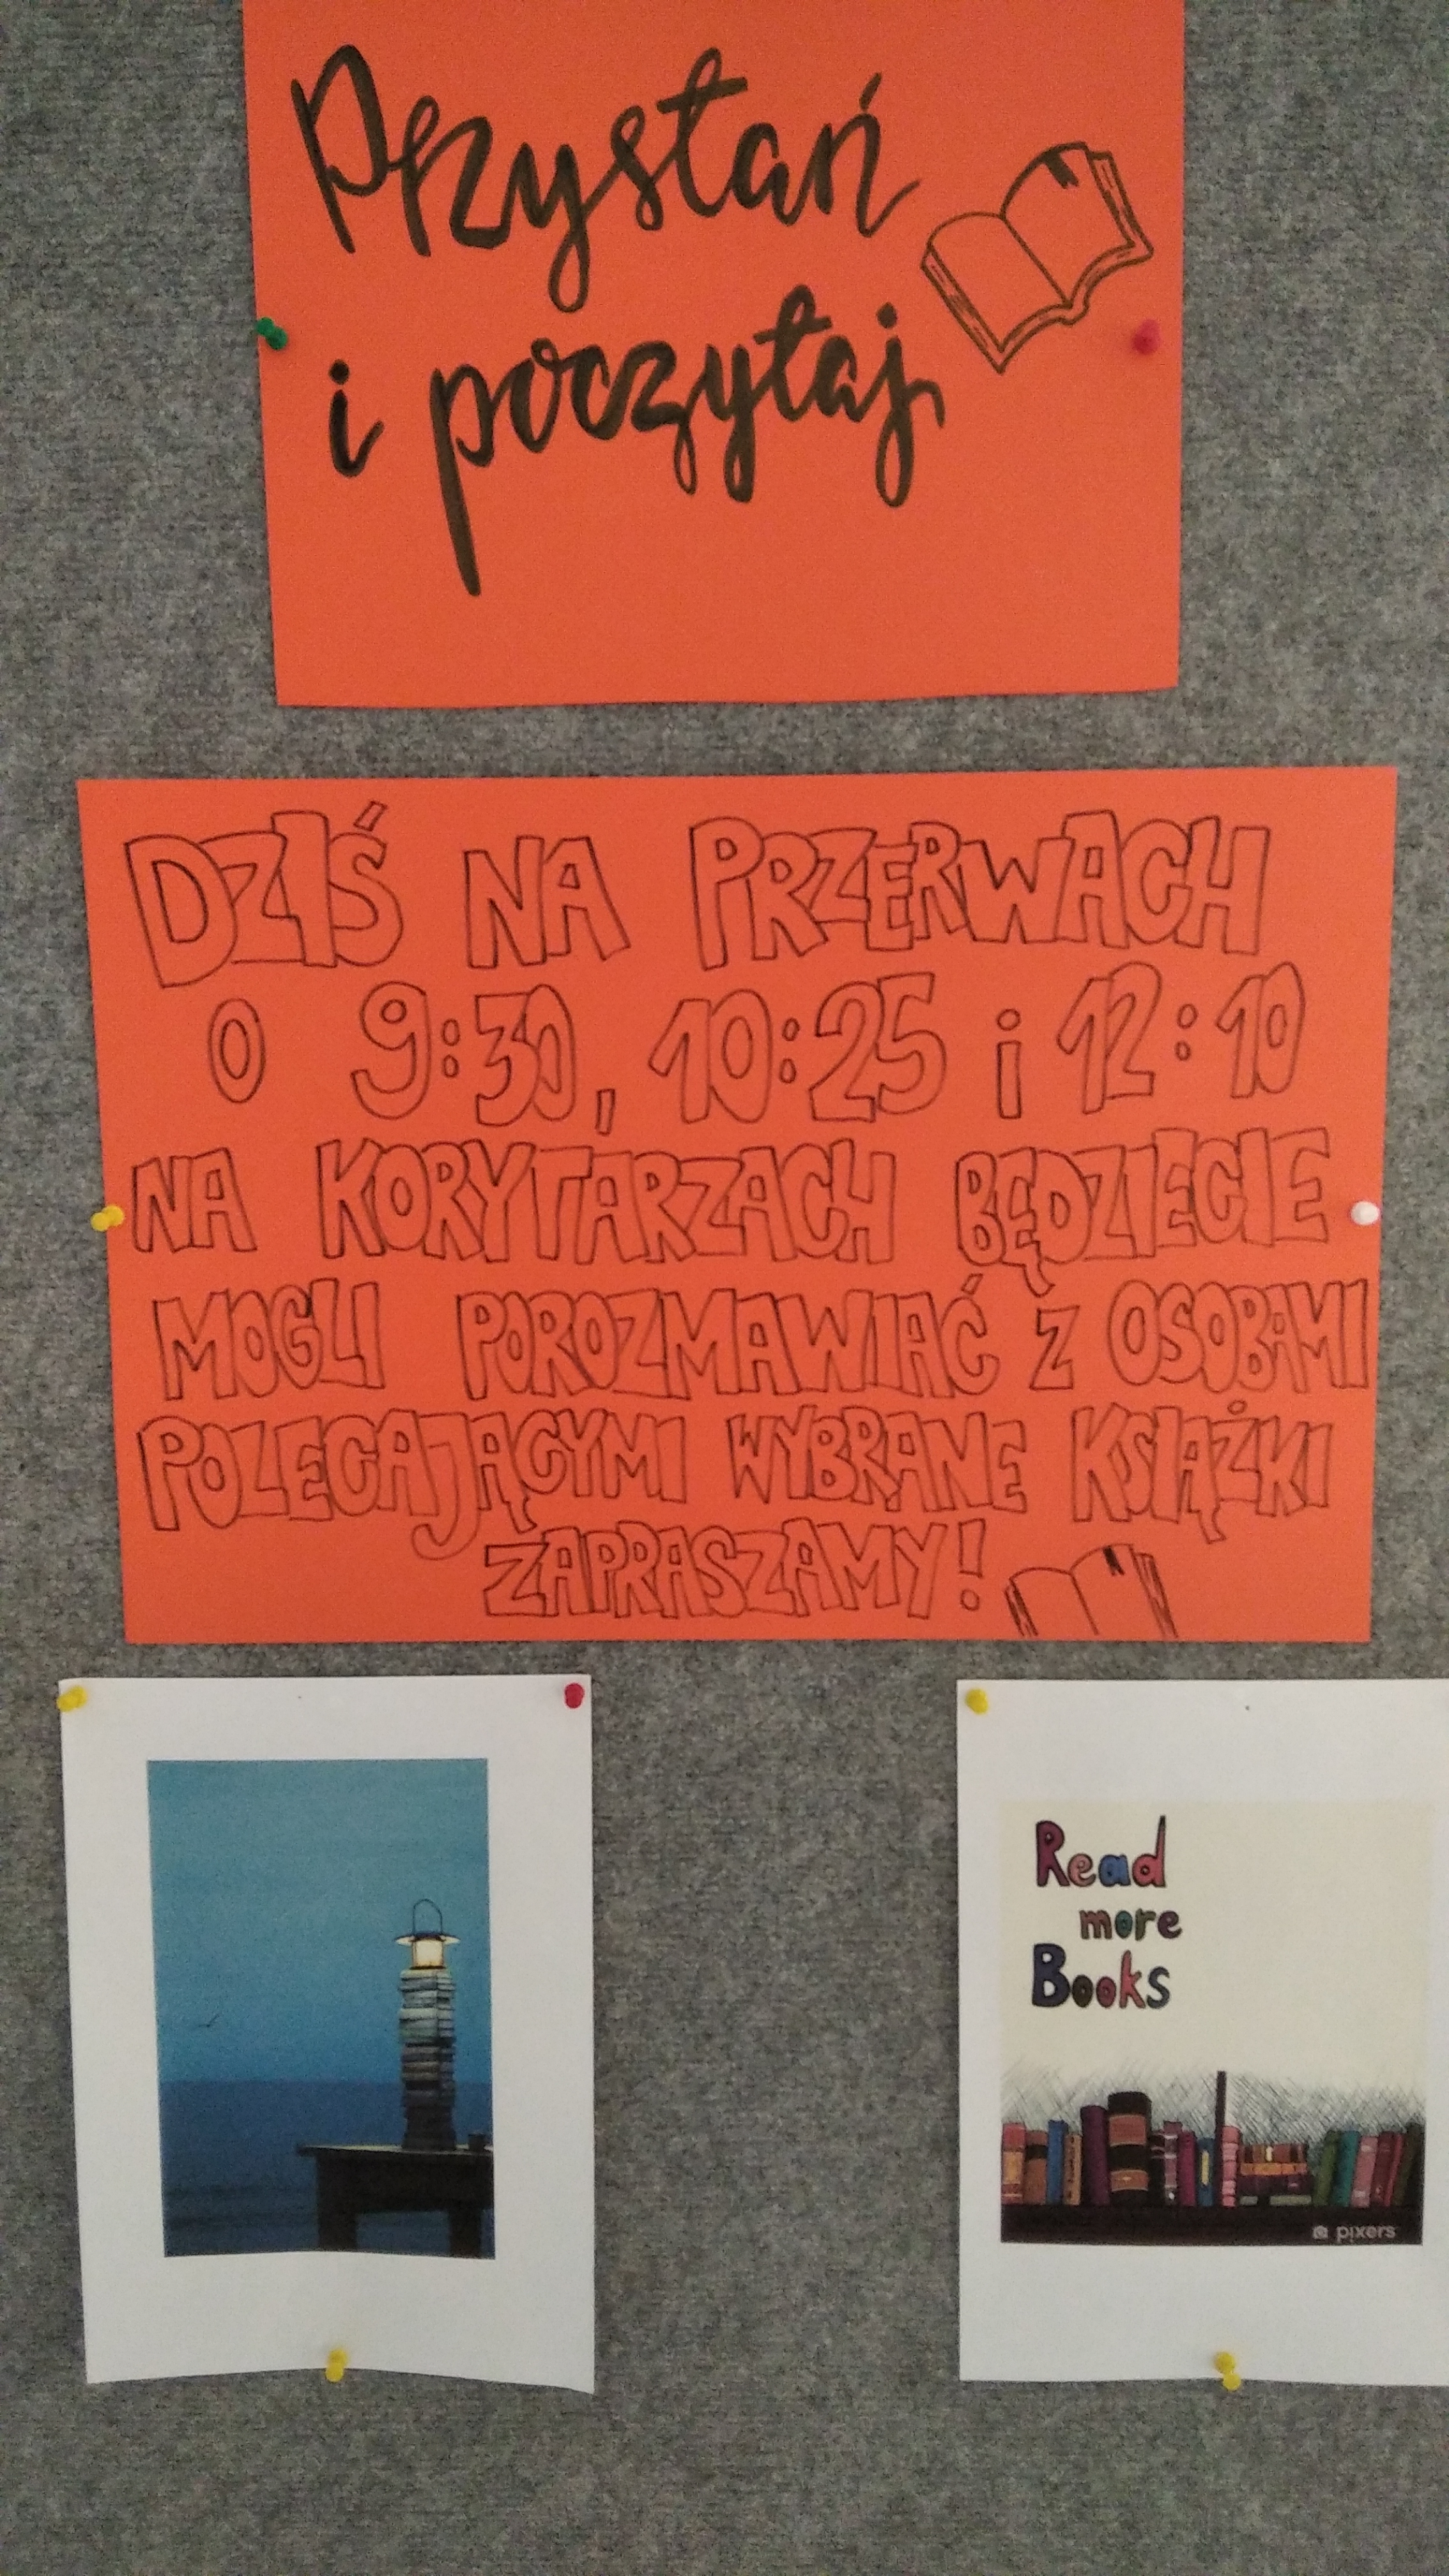 Przystań
i poczytaj
DZIŚ NA PRZERWACH
O 9:30, 10:25 i 12:10
NA KORYTARZACH BĘDZIECIE
MOGLI POROZMAWIAĆ Z OSOBAMI
POLECAJĄCYMI WYBRANE KSIĄŻKI
ZAPRASZAMY!
Read
more
Books
pixers